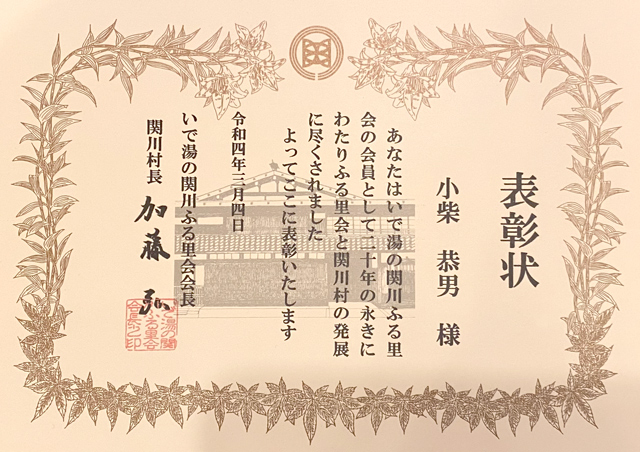 表彰状
小柴 恭男 様
あなたはいで湯の関川ふる里
会の会員として二十年の永きに
わたりふる里会と関川村の発展
に尽くされました
よってここに表彰いたします
令和四年三月四日
いで湯の関川ふる里会会長
関川村長 加藤 弘
いで湯の関
川ふる里会
会長之印